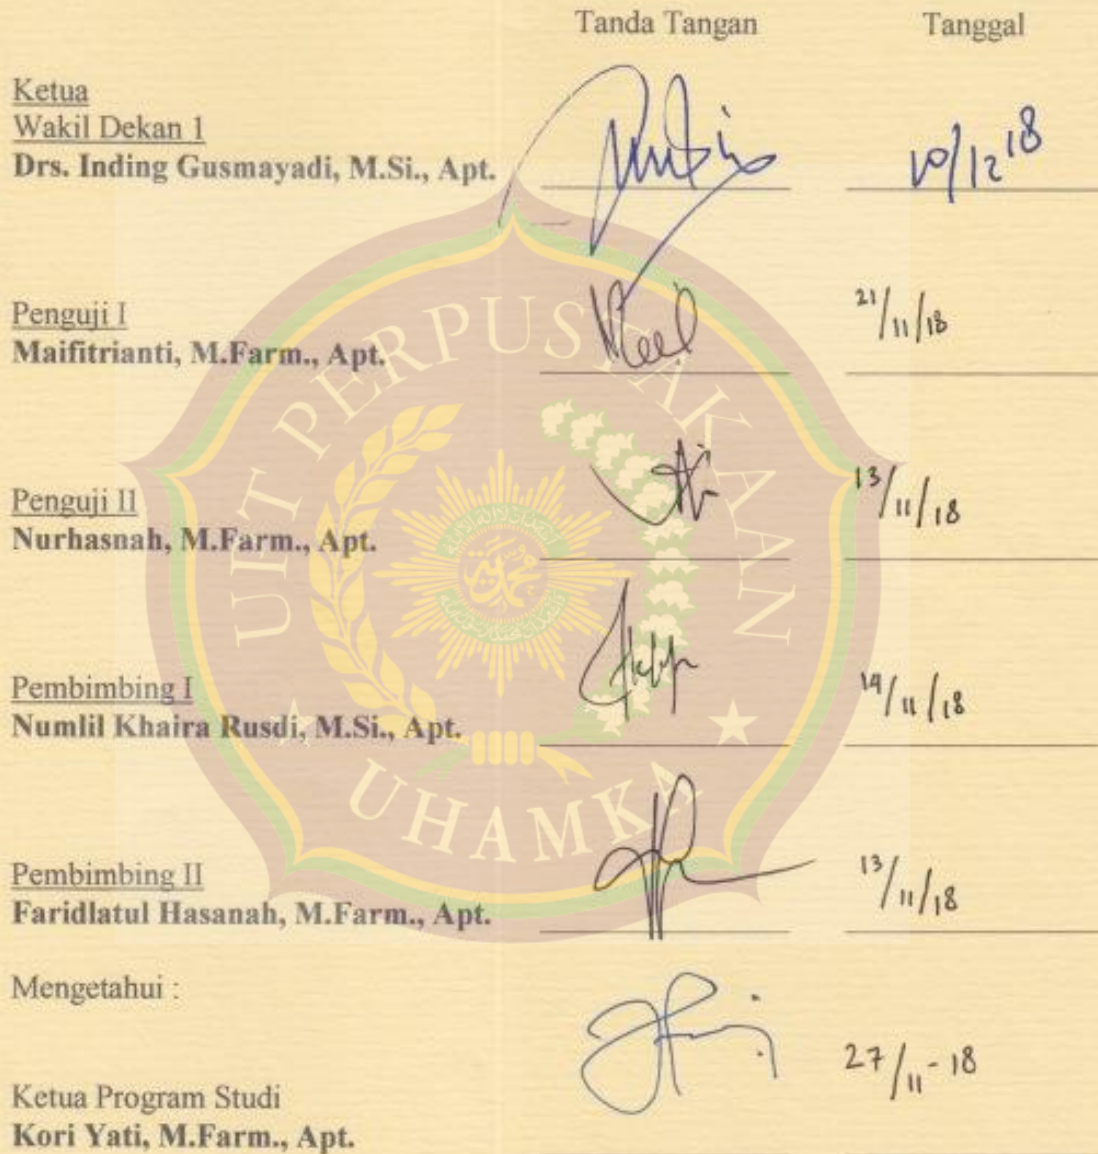 Tanda Tangan Tanggal
Ketua
Wakil Dekan 1
Drs. Inding Gusmayadi, M.Si., Apt. 10/12 18
Penguji I 21/11/18
Maifitrianti, M.Farm., Apt.
Penguji II 13/11/18
Nurhasnah, M.Farm., Apt.
Pembimbing I 14/11/18
Numlil Khaira Rusdi, M.Si., Apt.
Pembimbing II 13/11/18
Faridlatul Hasanah, M.Farm., Apt.
Mengetahui :
27/11-18
Ketua Program Studi
Kori Yati, M.Farm., Apt.
UPT PERPUSTAKAAN
UHAMKA